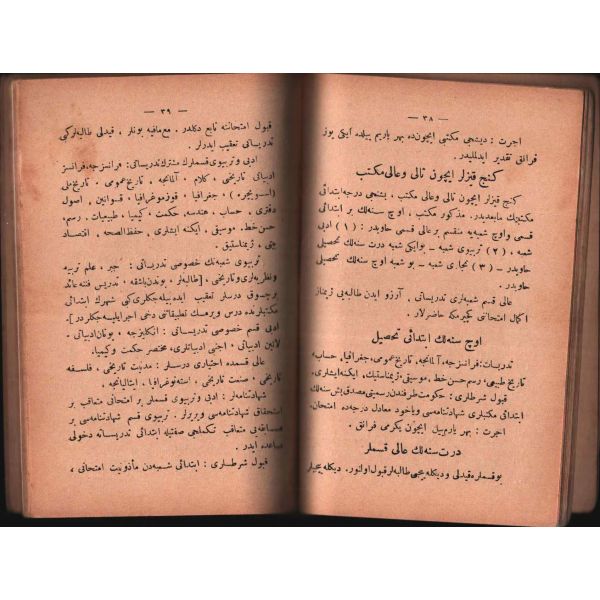 — ٣٨ —
اجرت : دینجی مكتبی ایچون ده بهر یاریم ییلده ایكی یوز
فرانق تقدیر ایدلمیلیدر.
كنج قیزلر ایچون تالی وعالی مكتب
كنج قیزلر ایچون تالی وعالی مكتب ، بشنجی درجه ابتدائی
مكتبك مابعدیدر. مذكور مكتب ، اوچ سنه لك بر ابتدائی
قسمی و اوچ شعبه یه منقسم بر عالی قسمی حاویدر : ( ١ ) ادبی
شعبه ، ( ٢ ) تربیوی شعبه – بو ایكی شعبه درت سنه لك تحصیلی
حاویدر – ( ٣ ) تجاری شعبه – بو شعبه اوچ سنه لك تحصیلی
حاویدر .
عالی قسم شعبه لری تدریساتی ، آرزو ایدن طالبه یی
اكمال امتحانی كچیرمكه حاضرلار .
اوچ سنه لك ابتدائی تحصیل
تدریسات : فرانسزجه، آلمانجه، تاریخ عمومی، جغرافیا، حساب،
تاریخ طبیعی، رسم، حسن خط، موسیقی، ژیمناستیك، ایكنه ایشلری.
قبول شرطلری : حكومت طرفندن رسمیتی مصدق بش سنه لك
ابتدائی مكتبلری شهادتنامه سی ویاخود معادل درجه ده امتحان.
اجرت : بهر یاریم ییل ایچون یكرمی فرانق .
درت سنه لك عالی قسملر
بو قسملره قیدلی و دیكله ییجی طالبه لر قبول اولنور. دیكله ییجیلر
— ٣٩ —
قبول امتحاننه تابع دكلدر. مع مافیه بونلر ، قیدلی طالبه لر كبی
تدریساتی تعقیب ایدرلر .
ادبی وتربیوی قسملرك مشترك تدریساتی : فرانسزجه، فرانسز
ادبیاتی تاریخی ، كلام ، آلمانجه ، تاریخ عمومی ، تاریخ ملی
( اسویچره ) ، جغرافیا ، قوزموغرافیا ، قوانین ، اصول
دفتری ، حساب ، هندسه، حكمت ، كیمیا ، طبیعیات ، رسم،
حسن خط، موسیقی ، ایكنه ایشلری ، حفظ الصحه ، اقتصاد
بیتی ، ژیمناستیق .
تربیوی شعبه نك خصوصی تدریساتی : جبر ، علم تربیه
ونظریه لری وتاریخی ، [ طالبه لر ، بوندن باشقه ، تدریس فننه عائد
برچوق درسلر تعقیب ایده بیله جكلری كبی شهرك ابتدائی
مكتبلرنده درس ویرمك تطبیقاتنی دخی اجرا ایلیه جكلردر ].
ادبی قسم خصوصی تدریساتی : انكلیزجه ، یونان ادبیاتی ،
لاتین ادبیاتی ، اجنبی ادبیاتلری، مختصر حكمت وكیمیا.
عالی قسمده اختیاری درسلر : مدنیت تاریخی ، فلسفه
تاریخی ، صنعت تاریخی ، استه نوغرافیا ، ایتالیانجه .
شهادتنامه لر : ادبی وتربیوی قسملری بر امتحانی متعاقب بر
استحقاق شهادتنامه سی ویریرلر . تربیوی قسم شهادتنامه سی بر
مسابقه یی متعاقب تكملجی صفتیله ابتدائی تدریساته دخولی
مساعده ایدر .
قبول شرطلری : ابتدائی شعبه دن مأذونیت امتحانی ،